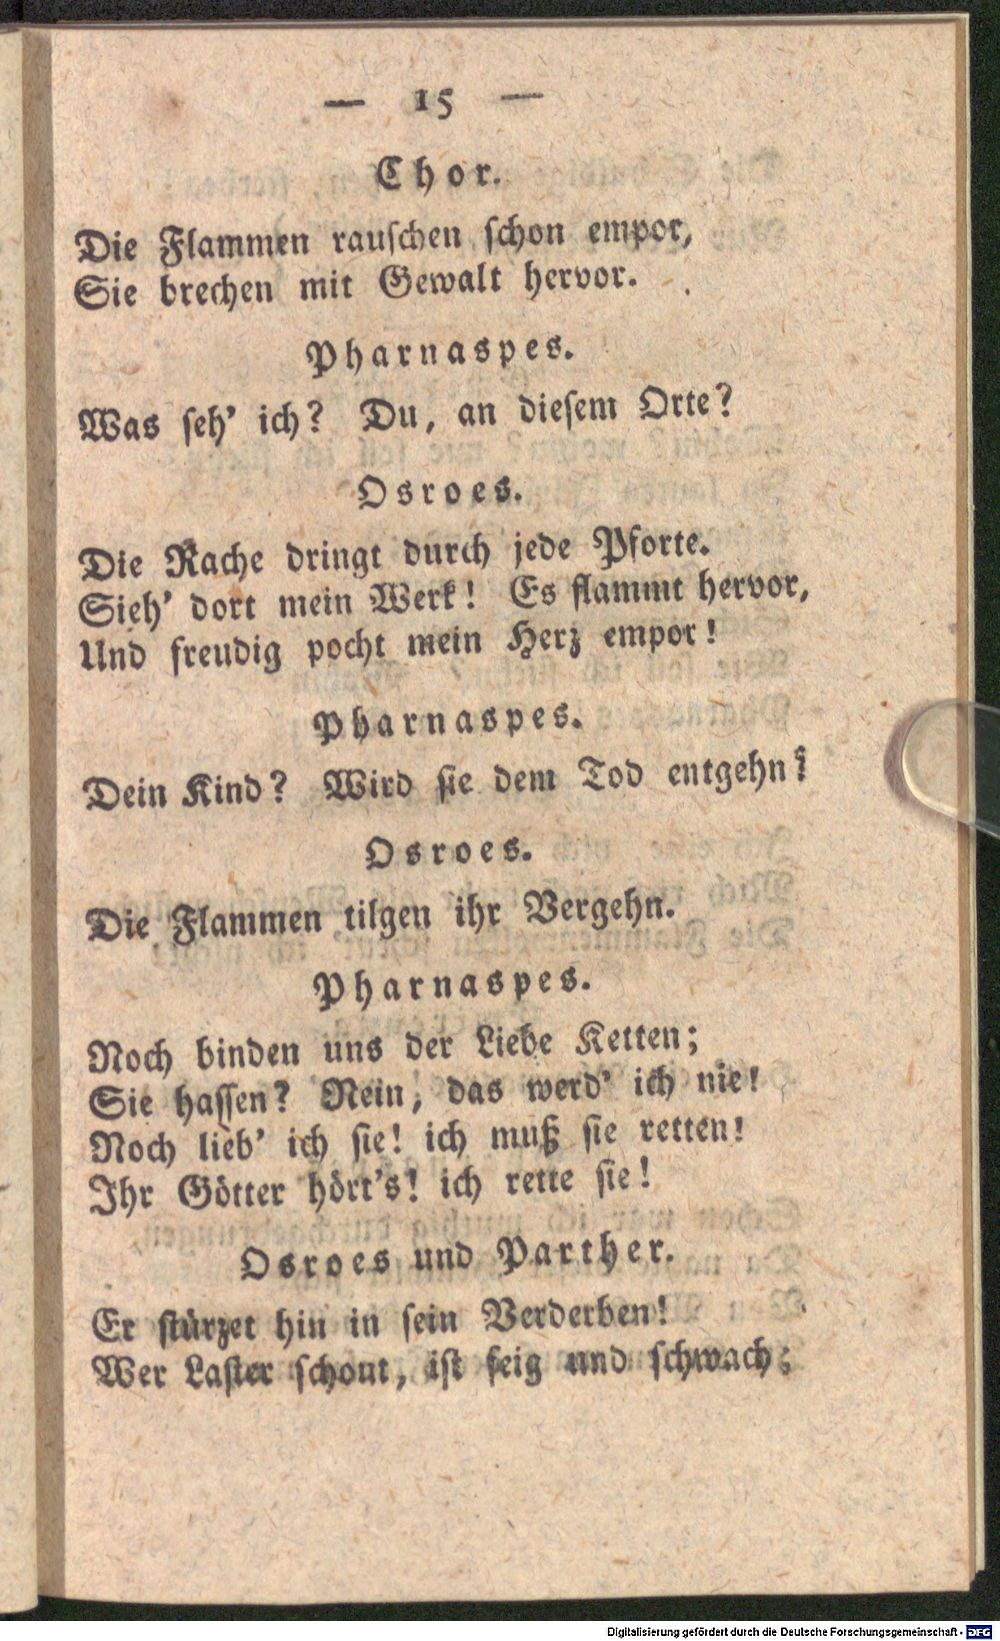 — 15 —
Chor.
Die Flammen rauſchen ſchon empor,
Sie brechen mit Gewalt hervor.
Pharnaspes.
Was ſeh' ich? Du, an dieſem Orte?
Osroes.
Die Rache dringt durch jede Pforte.
Sieh' dort mein Werk! Es flammt hervor,
Und freudig pocht mein Herz empor!
Pharnaspes.
Dein Kind? Wird ſie dem Tod entgehn?
Osroes.
Die Flammen tilgen ihr Vergehn.
Pharnaspes.
Noch binden uns der Liebe Ketten;
Sie haſſen? Nein, das werd' ich nie!
Noch lieb' ich ſie! ich muß ſie retten!
Ihr Götter hört's! ich rette ſie!
Osroes und Parther.
Er ſtürzet hin in ſein Verderben!
Wer Laſter ſchont, iſt feig und ſchwach;
Digitalisierung gefördert durch die Deutsche Forschungsgemeinschaft - DFG